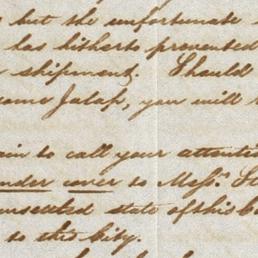 but the unfortunate
has hitherto prevented
shipment. Should
some Jalap, you will
to call your attention
under cover to Messrs.
unsettled state of this
to this City.